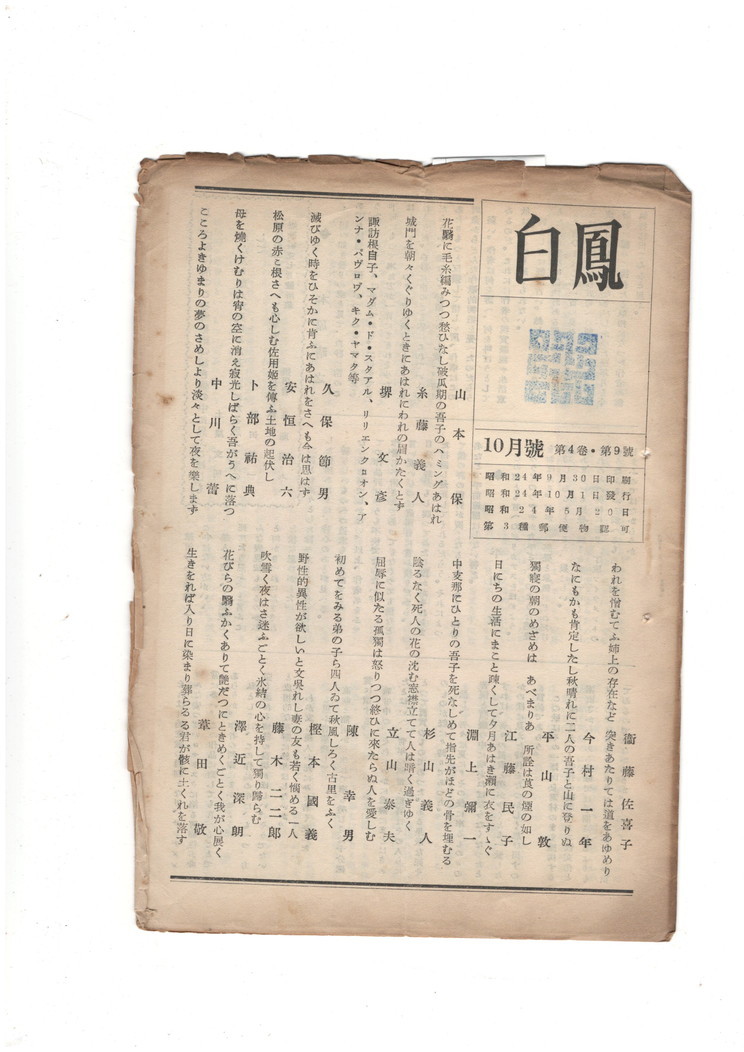 白鳳
10月號 第4卷・第9號
昭和24年9月30日印刷
昭和24年10月1日發行
昭和24年5月20日
第3種郵便物認可
山本保
花翳に毛糸編みつつ愁ひなし破瓜期の吾子のハミングあはれ
糸藤義人
城門を朝々くぐりゆくときにあはれにわれの眉かたくとず
堺文彦
諏訪根自子、マダム・ド・スタアル、リリエンクロオン、ア
ンナ・パヴロヴ、キク・ヤマタ等
久保節男
滅びゆく時をひそかに肯ふにあはれをさへも今は思はず
安恒治六
松原の赤き根さへも心しむ佐用姫を傳ふ土地の起伏し
卜部祐典
母を燒くけむりは宵の空に消え寂光しばらく吾がうへに落つ
中川蕾
こころよきゆまりの夢のさめしより淡々として夜を樂します
衞藤佐喜子
われを僧むてふ姉上の存在など 突きあたりては道をあゆめり
今村一年
なにもかも肯定したし秋晴れに二人の吾子と山に登りぬ
平山敦
獨寢の朝のめざめは あべまりあ 所詮は莨の煙の如し
江藤民子
日にちの生活にまこと疎くして夕月あはき瀬に衣をすゝぐ
淵上彌一
中支那にひとりの吾子を死なしめて指先がほどの骨を埋むる
杉山義人
陰るなく死人の花の沈む窓襟立てて人は暗く過ぎゆく
立山泰夫
屈辱に似たる孤獨は怒りつつ終ひに來たらぬ人を愛しむ
陳幸男
初めてをみる弟の子ら四人ゐて秋風しろく古里をふく
樫本國義
野性的異性が欲しいと文呉れし妻の友も若く惱める一人
藤木二二郎
吹雪く夜はさ迷ふごとく氷結の心を持して獨り歸らむ
澤近深朗
花びらの翳ふかくありて艷だつにときめくごとく我が心展く
葦田敬
生きをれば入り日に染まり葬らるる君が骸に土くれを落す